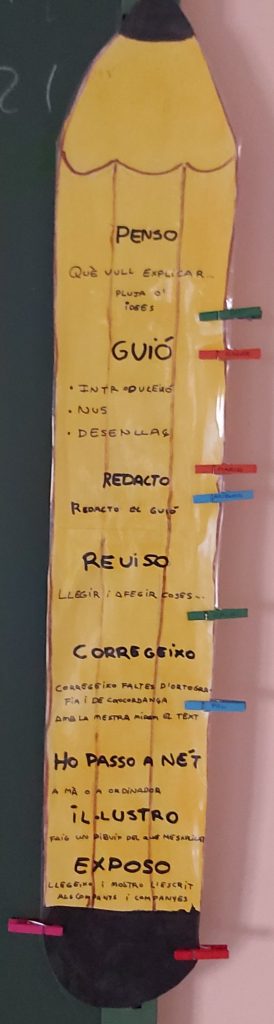 21
PENSO
QUÈ VULL EXPLICAR...
PLUJA D'
IDEES
GUIÓ
• INTRODUCCIÓ
• NUS
• DESENLLAÇ
REDACTO
REDACTO EL GUIÓ
REVISO
LLEGIR I AFEGIR COSES...
CORREGEIXO
CORREGEIXO FALTES D'ORTOGRA
FIA I DE CONCORDANÇA
AMB LA MESTRA MIREM EL TEXT
HO PASSO A NET
A MÀ O A ORDINADOR
IL·LUSTRO
FAIG UN DIBUIX DEL QUE
EXPOSO
LLEGEIXO I MOSTRO L'ESCRIT
ALS COMPANYS I COMPANYES